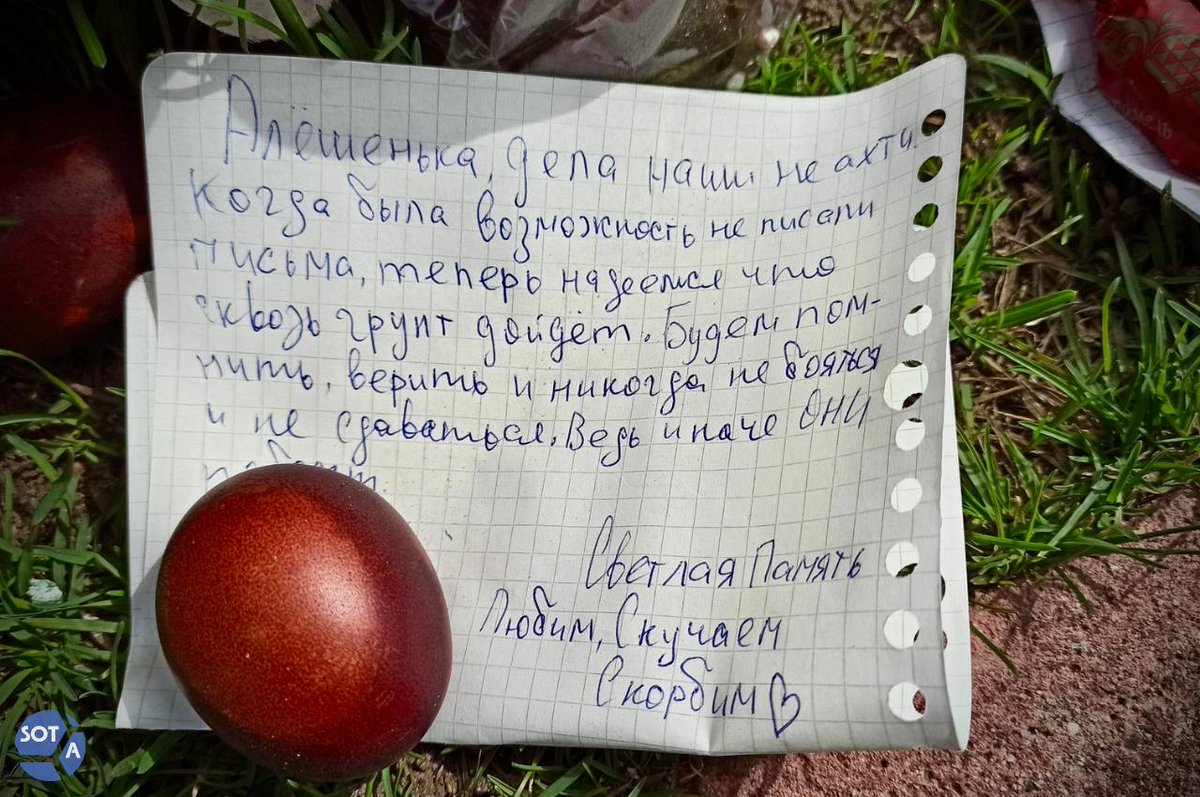 Алёшенька, дела наши не ахти.
Когда была возможность не писали
письма, теперь надеемся что
сквозь грунт дойдёт. Будем пом-
нить, верить и никогда не боятся
и не сдаваться. Ведь иначе ОНИ
Светлая Память
Любим, Скучаем
Скорбим
SOT
A